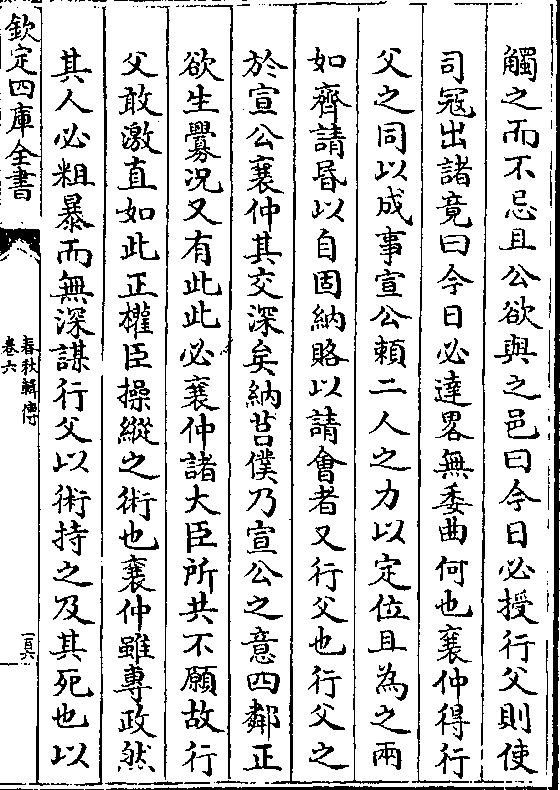 觸之而不忌且公欲與之邑曰今日必授行父則使
司冦出諸竟曰今日必達畧無委曲何也襄仲得行
父之同以成事宣公頼二人之力以定位且為之兩
如齊請昏以自固納賂以請㑹者又行父也行父之
於宣公襄仲其交深矣納莒僕乃宣公之意四鄰正
欲生釁况又有此此必襄仲諸大臣所共不願故行
父敢激直如此正權臣操縱之術也襄仲雖專政然
其人必粗暴而無深謀行父以術持之及其死也以
欽定四庫全書
春秋輯傳
卷六
一百六